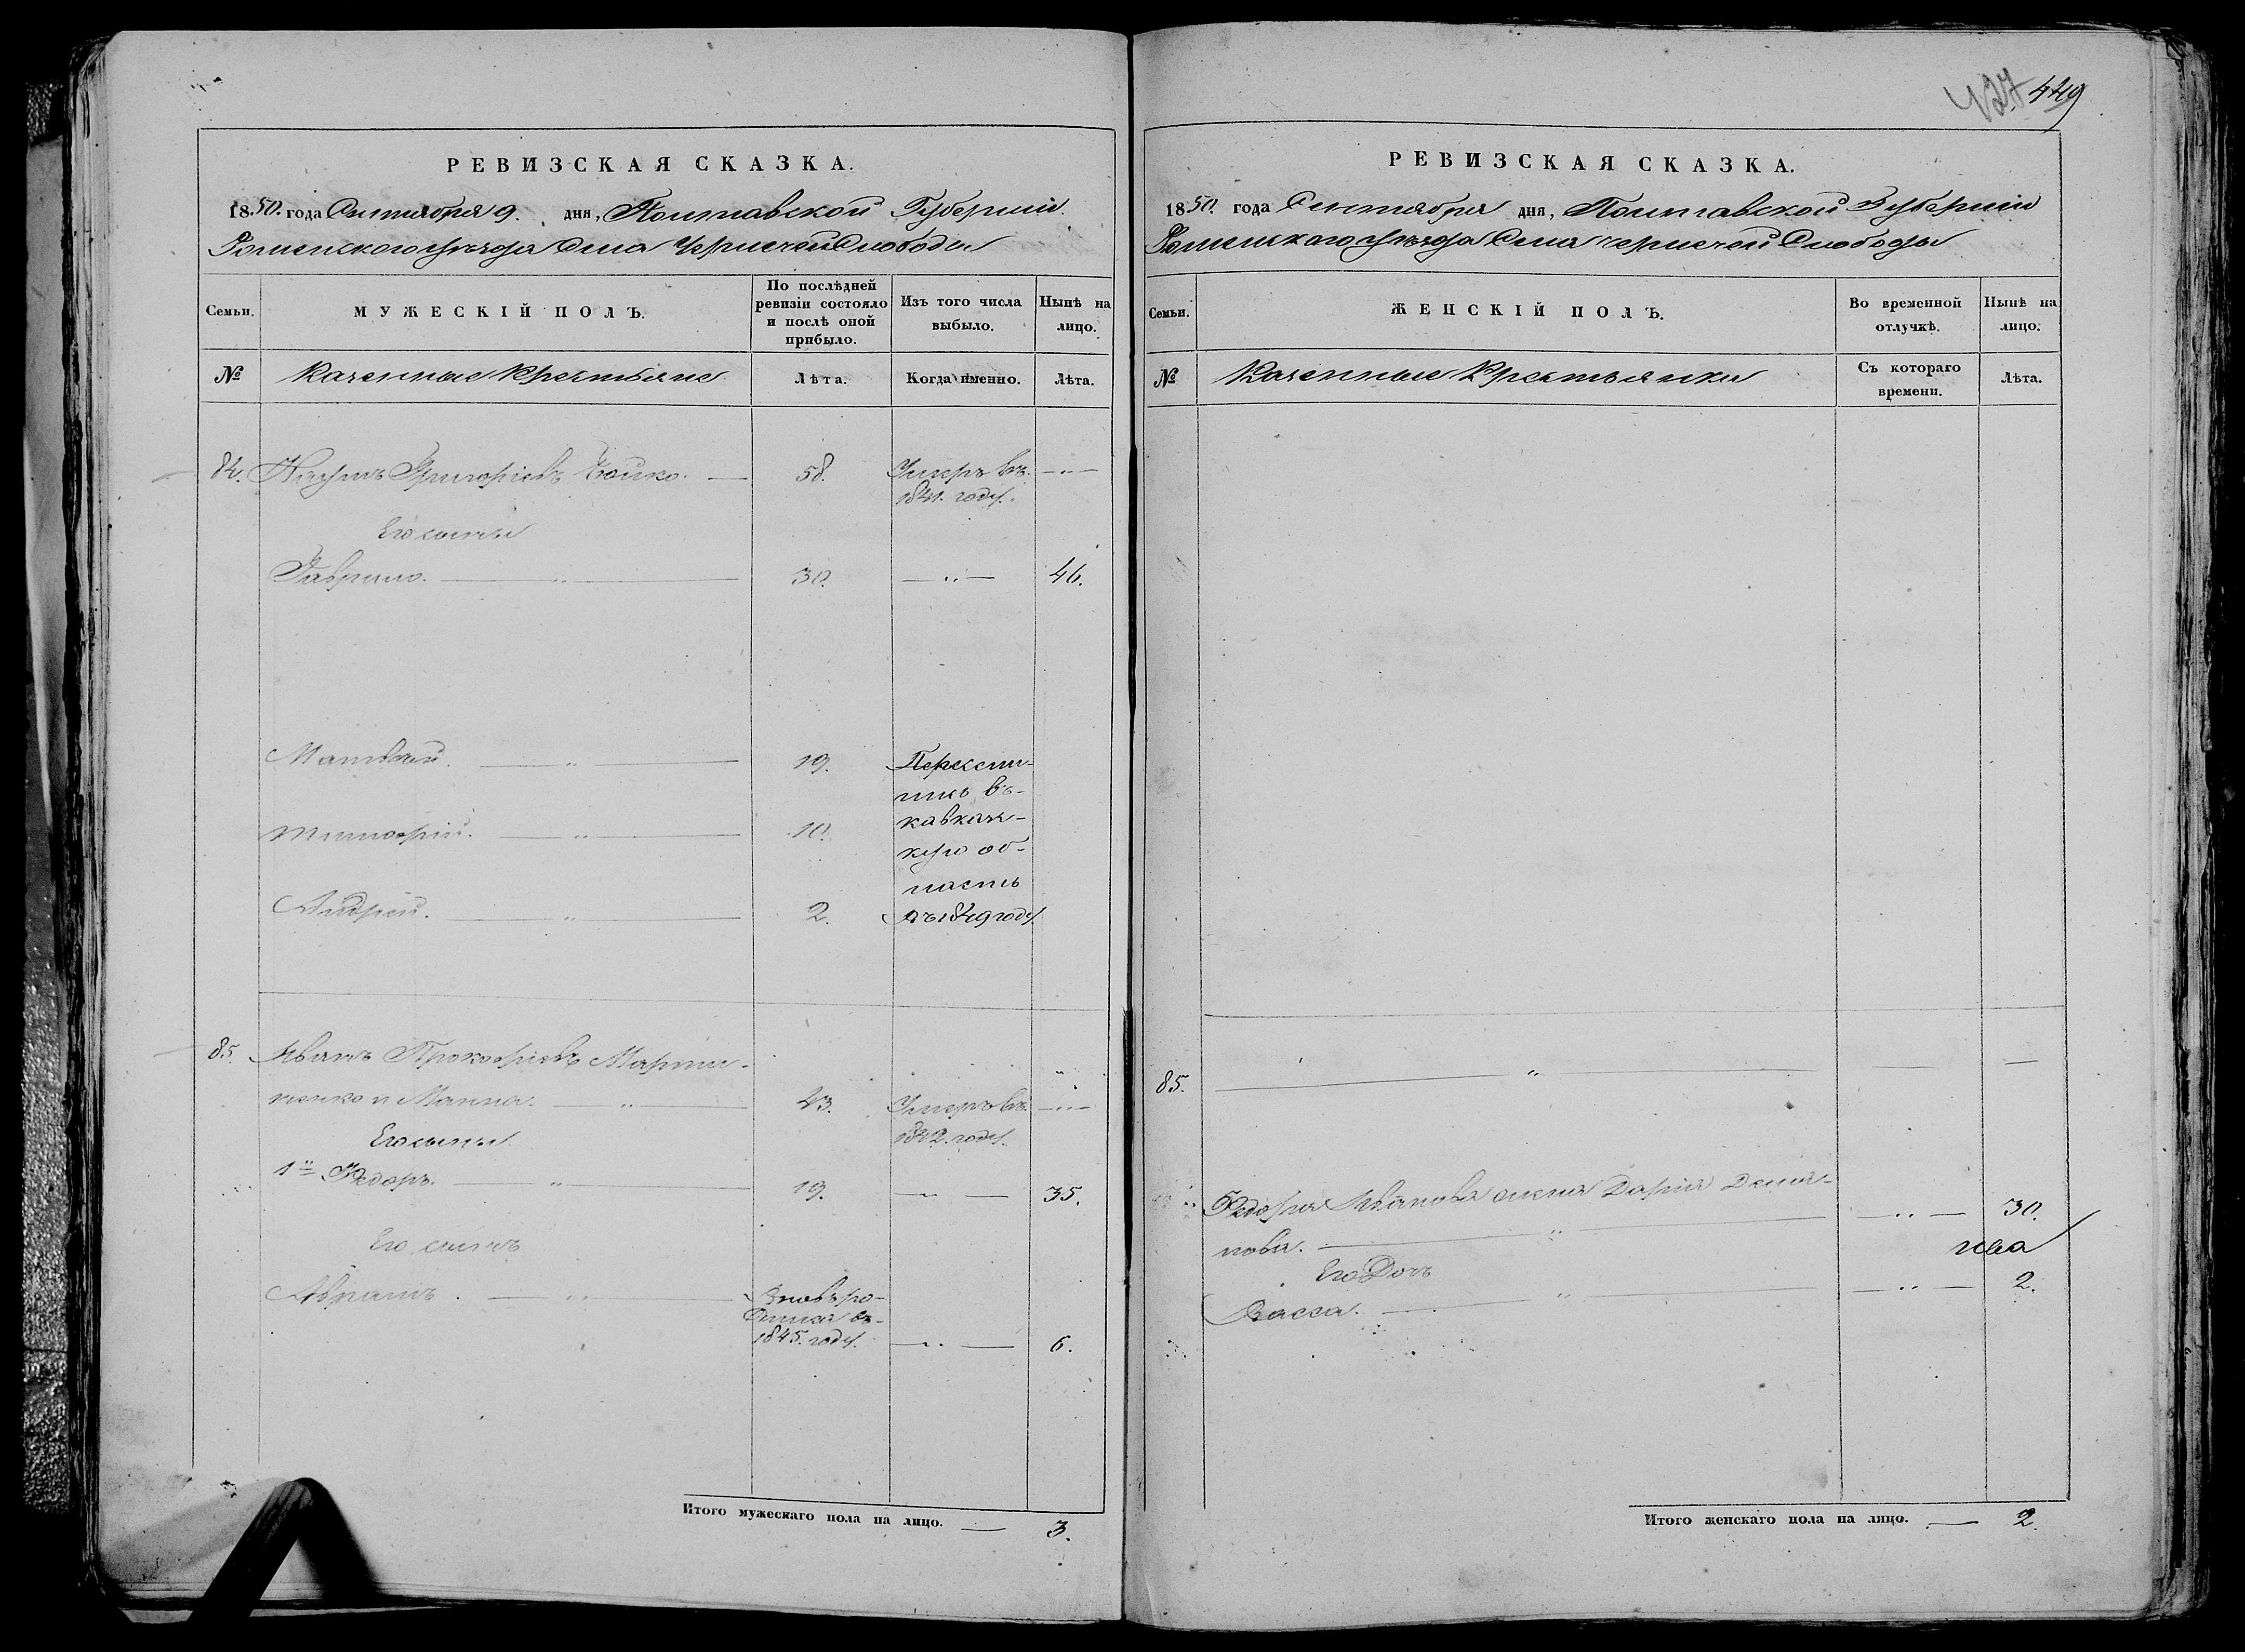 РЕВИЗСКАЯ СКАЗКА.
1850. года Сентября 9. дня, Полтавской Губерніи
Роменского уѣзда Села Чернечей Слободы
Семьи.
МУЖЕСКІЙ ПОЛЪ.
По послѣдней
ревизіи состояло
и послѣ оной
прибыло.
Изъ того числа
выбыло.
Нынѣ на
лицо.
№
Казенные Крестьяне
Лѣта.
Когда именно.
Лѣта.
84. Наумъ Григоріевъ Бойко. — 58. Умеръ въ —"—
1841. году.
Его сыны
Гаврило. — " — 30. —"— 46.
Матвей. — " — 19. Пересели-
лись въ-
Тимофій. — " — 10. кавказс-
кую об-
ласть
Андрей. — " — 2. въ 1849 году.
85. Иванъ Прокофіевъ Марти-
ненко — " — 43. Умеръ въ —"—
Его сыны 1842. году.
1й Федоръ. — " — 19. —"— 35.
Его сынъ
Абрамъ. — " — Вновь ро-
дился въ-
1845. году. —"— 6.
Итого мужескаго пола на лицо. — 3.
449
РЕВИЗСКАЯ СКАЗКА.
1850. года Сентября дня, Полтавской Губерніи
Роменского уѣзда Села Чернечей Слободы
Семьи.
ЖЕНСКІЙ ПОЛЪ.
Во временной
отлучкѣ.
Нынѣ на
лицо.
№
Казенные Крестьянки
Съ котораго
времени.
Лѣта.
85. — " —
Федора Иванова жена Дарія Деми-
нова. — " — —"— 30.
Его Дочь
Васса. — " — —"— 2.
Итого женскаго пола на лицо. — 2.